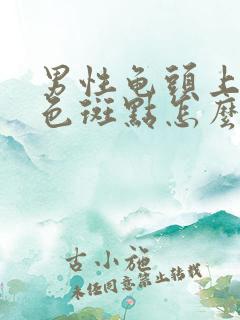 男性龜頭上
色斑點怎麼
古小施
未经同意禁止转载